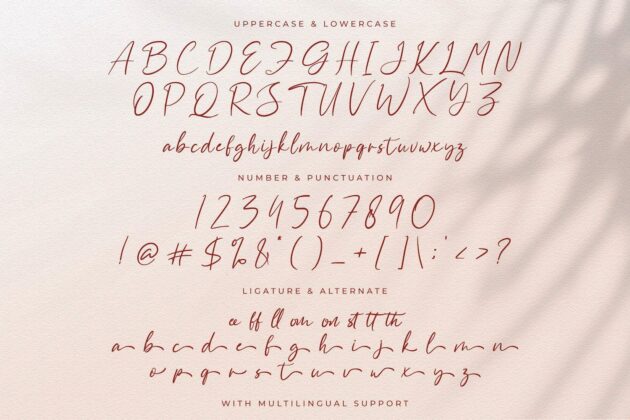 UPPERCASE & LOWERCASE
ABCDEFGHIJKLMN
OPQRSTUVWXYZ
abcdefghijklmnopqrstuvwxyz
NUMBER & PUNCTUATION
1234567890
!@#$%&*()_+[]\:'<>?
LIGATURE & ALTERNATE
ee ff ll om on st tt th
abcdefghijklmn
opqrstuvwxyz
WITH MULTILINGUAL SUPPORT